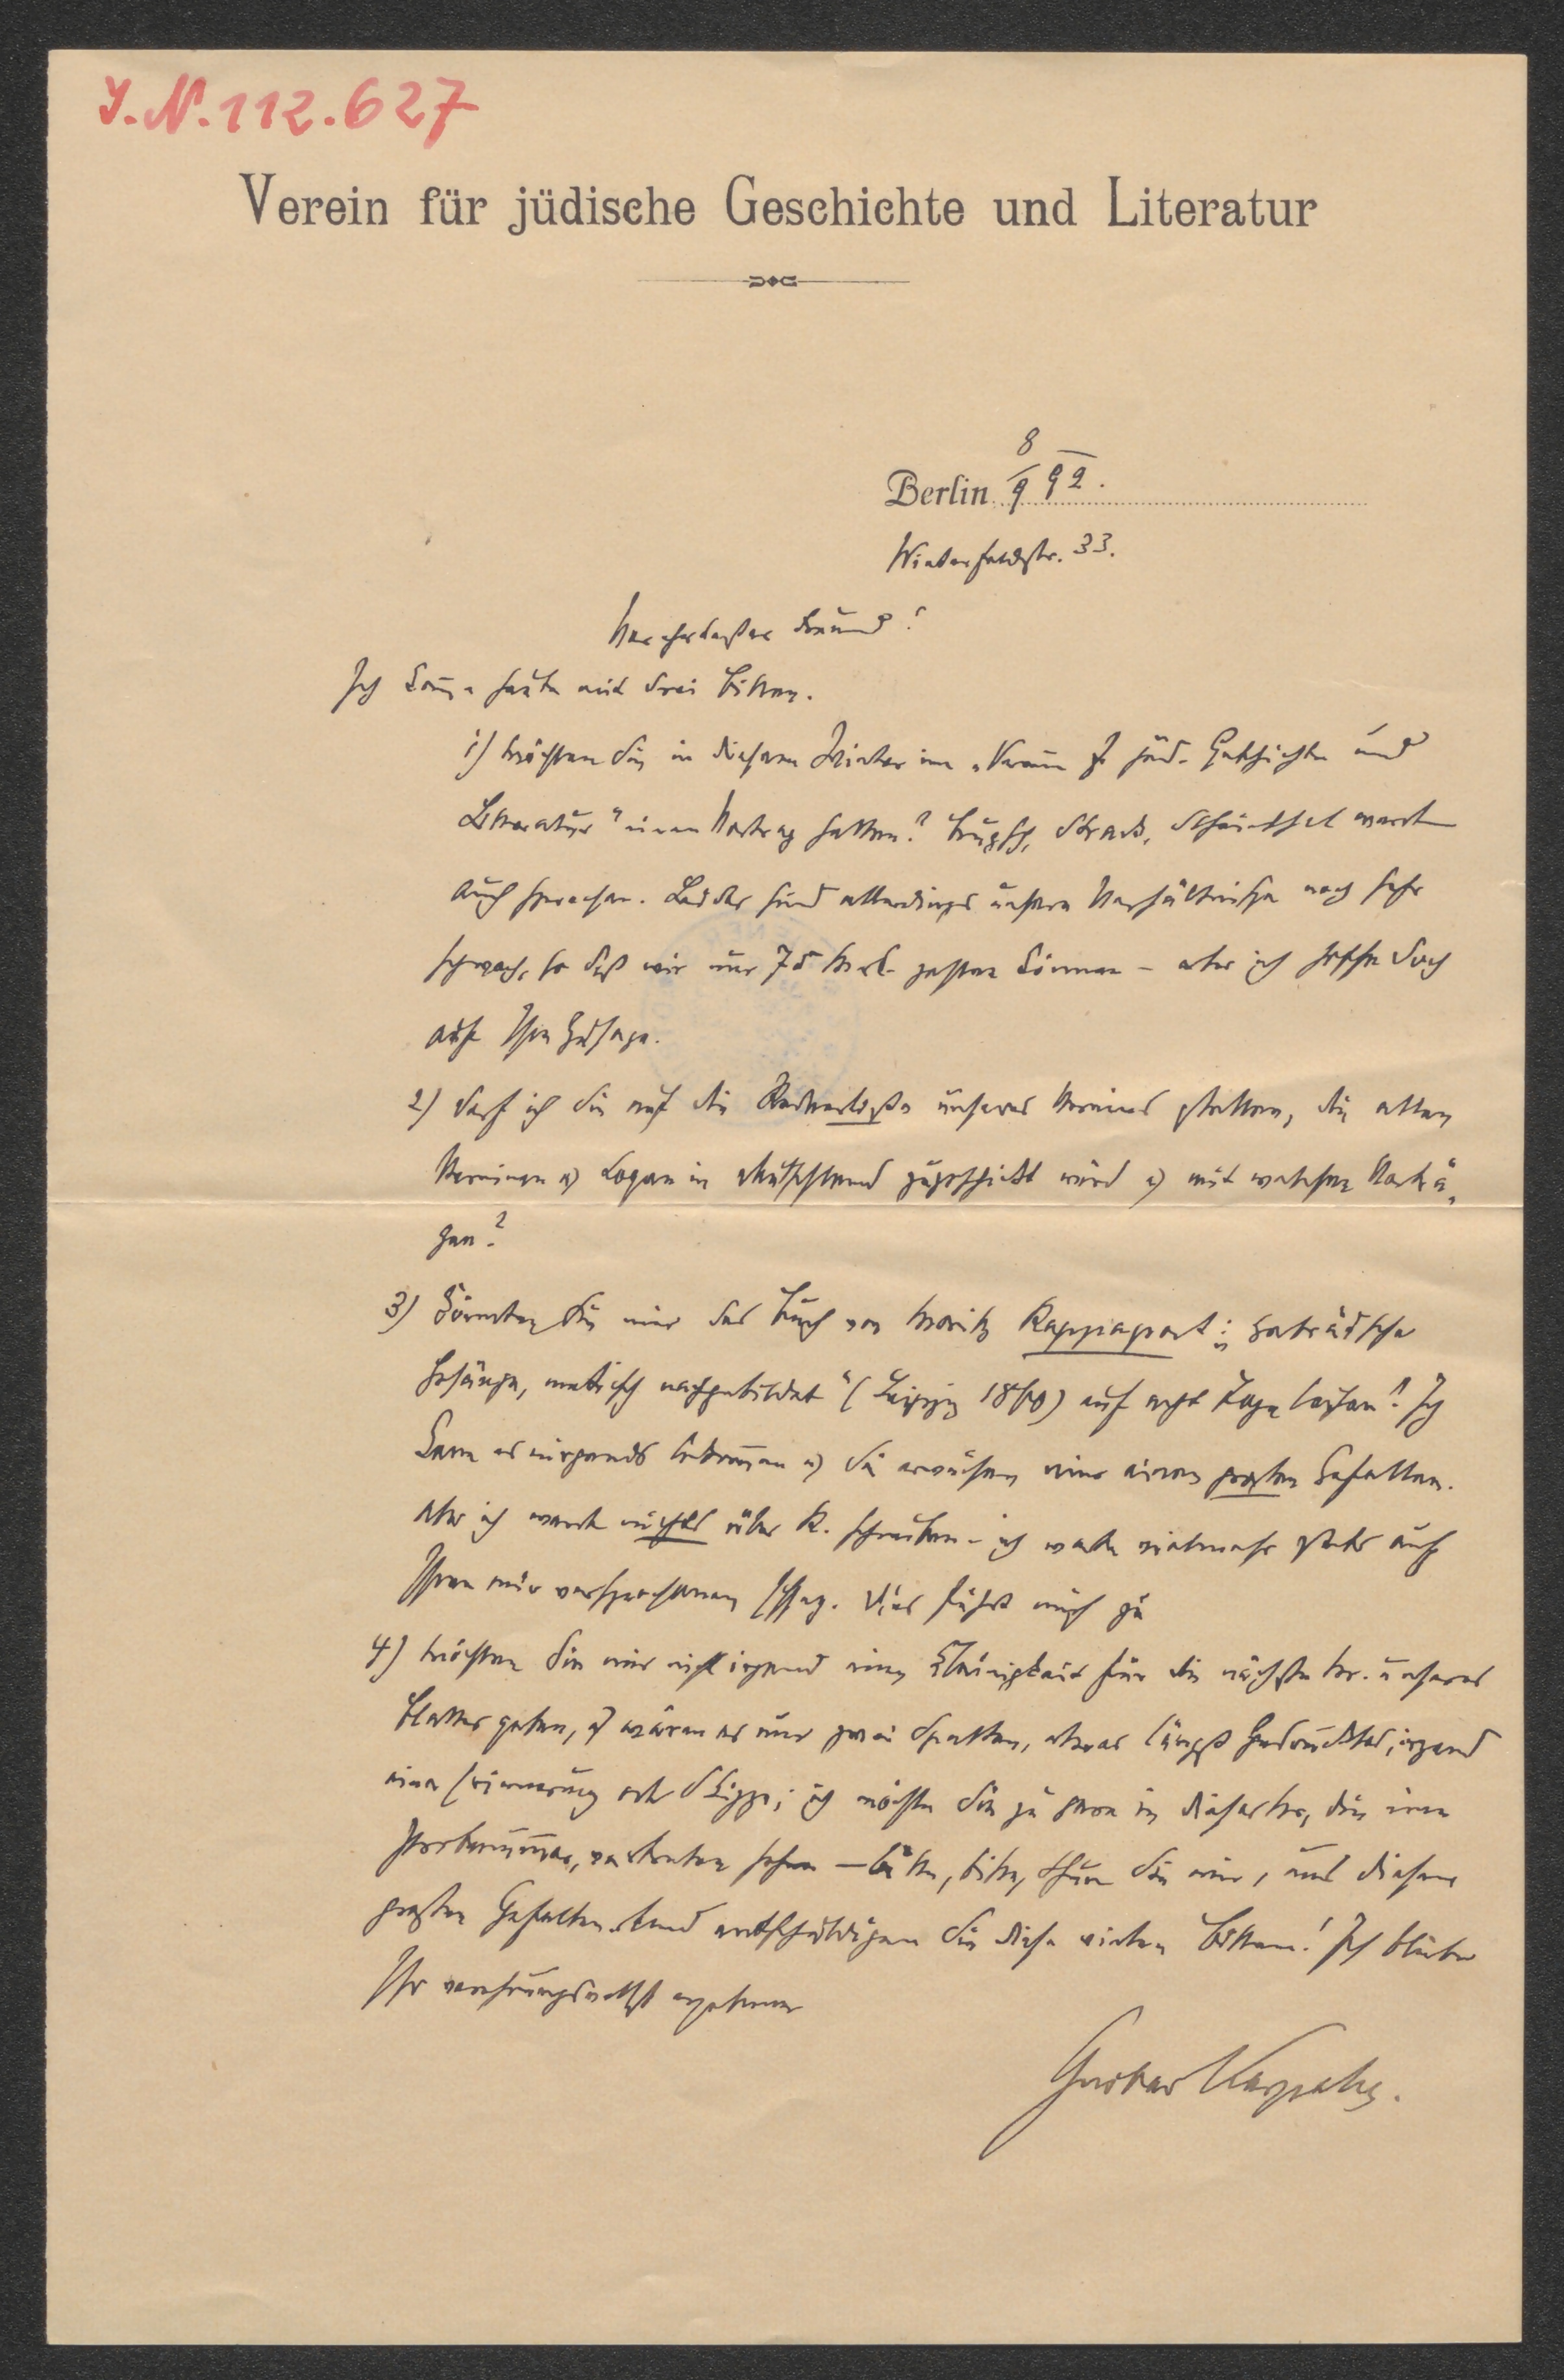 J.N.112.627
Verein für jüdische Geschichte und Literatur
8
Berlin 9 92.
Winterfeldstr. 33.
Verehrtester Freund!
Ich komme heute mit drei Bitten.
1) Möchten Sie in diesem Winter im „Verein f. jüd. Geschichte und
Litteratur" einen Vortrag halten? Strack, werden
auch sprechen. Leider sind allerdings unsere Verhältnisse noch sehr
schwach, so daß wir nur 75 Mark geben können – aber ich hoffe doch
auf Ihre Zusage.
2) Darf ich Sie auf die Rednerliste unseres Vereins stellen, die allen
Vereinen u) Logen in Deutschland zugeschickt wird u) mit welchen Vorträ„
gen?
3) Könnten Sie mir das Buch von Moritz Rappaport: „Hebräische
Gesänge, metrisch nachgebildet" (Leipzig 1860) auf acht Tage leihen? Ich
kann es nirgends bekommen u) Sie erweisen mir einen großen Gefallen.
Aber ich werde nichts über R. schreiben – ich warte vielmehr stets auf
Ihren mir versprochenen Essay. Dies führt mich zu
4) Möchten Sie mir nicht irgend eine Kleinigkeit für die nächste Nr. unseres
Blattes geben, u) wären es nur zwei Spalten, etwas längst Gedrucktes, irgend
eine Erinnerung oder Skizze; ich möchte Sie zu gern in dieser Nr., die eine
Probenummer, vertreten sehen – bitte, bitte, thun Sie mir, und diesen
großen Gefallen und entschuldigen Sie diese vielen Bitten! Ich bleibe
Ihr verehrungsvollst ergebener
Gustav Karpeles.